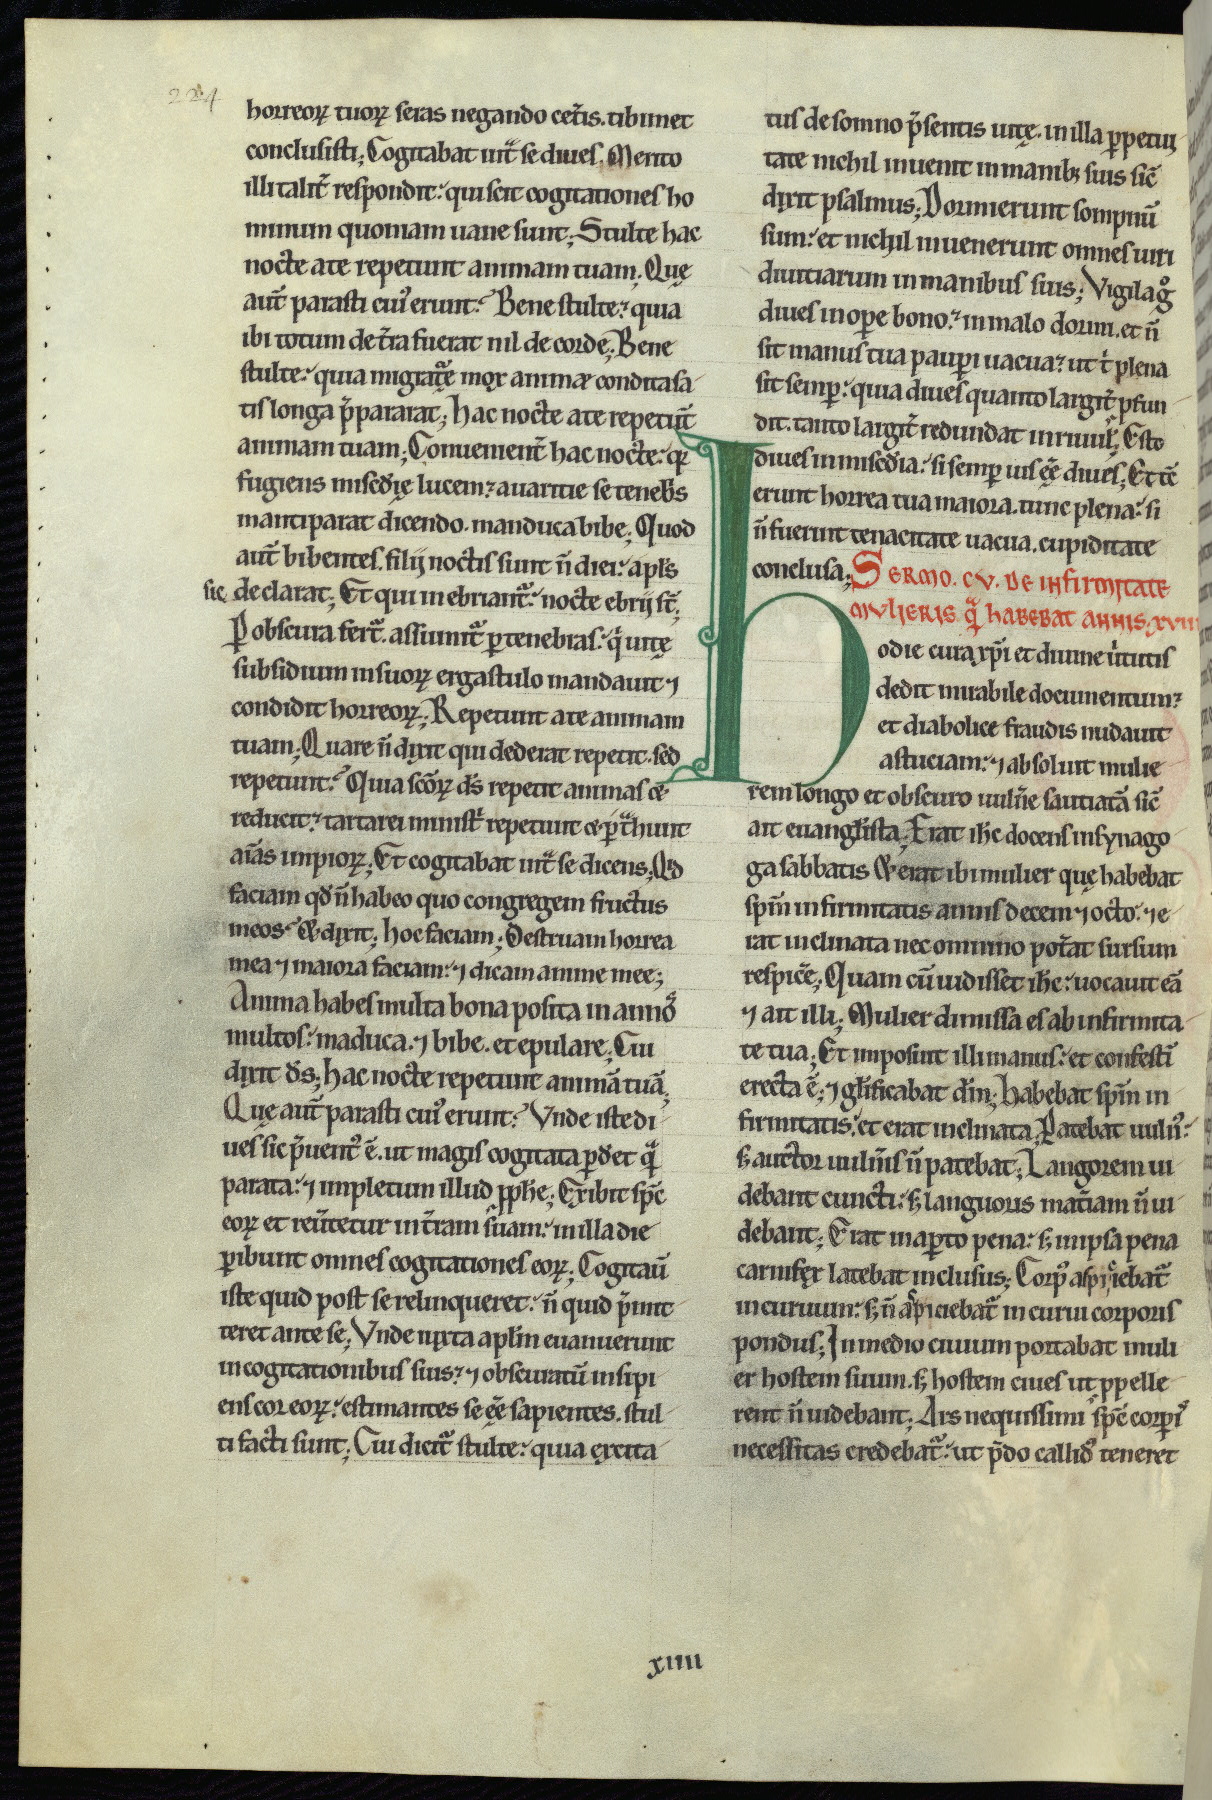 224
horreoꝝ tuoꝝ seras negando cet̄is. tibimet
conclusisti; Cogitabat int̄ se diues. Merito
illi talit̄ respondit: qui scit cogitationes ho
minum quoniam uane sunt; Stulte hac
nocte a te repetunt animam tuam; Quę
aut̄ parasti cui᷒ erunt? Bene stulte: quia
ibi totum de t̄ra fuerat nil de corde; Bene
stulte: quia migrat̄ę mox animæ condita sa
tis longa p̄pararat; hac nocte a te repetunt̄
animam tuam; Conuenient̄ hac nocte: qꝛ
fugiens mis̄cdię lucem: auaritie se teneb̄s
mantiparat dicendo. manduca bibe; Quod
aut̄ bibentes. filij noctis sunt n̄ diei: apl̄s
sic declarat; Et qui inebriant̄: nocte ebrij st̄;
P obscura fert̄. assumit̄ ꝑ tenebras: q̄ uitę
subsidium in suoꝝ ergastulo mandauit ⁊
condidit horreoꝝ; Repetunt a te animam
tuam; Quare n̄ dixit qui dederat repetit. sed
repetunt? Quia sc̄oꝝ d̄s repetit animas ce
reducit: tartarei minist̄ repetunt ce p̄t̄hunt
aīas impioꝝ; Et cogitabat int̄ se dicens; Qd
faciam qd̄ n̄ habeo quo congregem fructus
meos? & dixit; hoc faciam; Destruam horrea
mea ⁊ maiora faciam: ⁊ dicam anime mee;
Anima habes multa bona posita in annos̄
multos: maduca. ⁊ bibe. et epulare; Cui
dixit d̄s; hac nocte repetunt animā tuā;
Quę aut̄ parasti cui᷒ erunt? Vnde iste di
ues sic p̄uent᷒ ē. ut magis cogitata ꝑdet q̄
parata: ⁊ impletum illud ꝓph̄e; Exibit sp̄c
eoꝝ et reūtetur in t̄ram suam: in illa die
ꝑibunt omnes cogitationes eoꝝ; Cogitaū
iste quid post se relinqueret: n̄ quid p̄mit
teret ante se; Vnde iuxta apl̄m euanuerunt
in cogitationibus suis: ⁊ obscuratū insipi
ens cor eoꝝ: estimantes se ēē sapientes. stul
ti facti sunt; Cui dicit̄ stulte: quia excita
tus de somno p̄sentis uitę. in illa ꝑpetui
tate nichil inuenit in manibꝫ suis sic̄
dixit psalmus; Dormierunt sompnū
suum: et nichil inuenerunt omnes uiri
diuitiarum in manibus suis; Vigila g᷒
diues in oꝑe bono: in malo dormi. et n̄
sit manus tua pauꝑi uacua: ut t̄ plena
sit semꝑ: quia diues quanto largit̄ ꝓfun
dit. tanto largit̄ redundat in riuul̄; Esto
diues in mis̄cdia: si semꝑ uis ēē diues; Et tc̄
erunt horrea tua maiora. tunc plena: si
n̄ fuerunt tenacitate uacua. cupiditate
conclusa; SERMO. CV. DE INFIRMITATE
MVLIERIS Q̄ HABEBAT ANNIS. XVIII
hodie cura xp̄i et diuine ūtutis
dedit mirabile documentum:
et diabolice fraudis nudauit
astuciam: ⁊ absoluit mulie
rem longo et obscuro uuln̄e sautiatā sic̄
ait euangl̄ista; Erat ih̄c docens in synago
ga sabbatis & erat ibi mulier quę habebat
sp̄m infirmitatis annis decem ⁊ octo: ⁊ e
rat inclinata nec omnino pot̄at sursum
respic̄e; Quam cū uidisset ih̄c: uocauit eā
⁊ ait illi; Mulier dimissa es ab infirmita
te tua; Et imposuit illi manus: et confestī
erecta ē; ⁊ gl̄ificabat dm̄; Habebat sp̄m in
firmitatis: et erat inclinata; Patebat uuln᷒:
sꝫ auctor uuln̄is n̄ patebat; Langorem ui
debant cuncti: sꝫ languoris mat̄iam n̄ ui
debant; Erat in aꝑto pena: sꝫ in ipsa pena
carnifex latebat inclusus; Corp᷒ aspiciebat̄
incuruum: sꝫ n̄ aspiciebat̄ incurui corporis
pondus; In medio ciuium portabat muli
er hostem suum. sꝫ hostem ciues ut ꝓpelle
rent n̄ uidebant; Ars nequissimi sp̄c corꝑis
necessitas credebat̄: ut p̄do callid᷒ teneret
xiiii